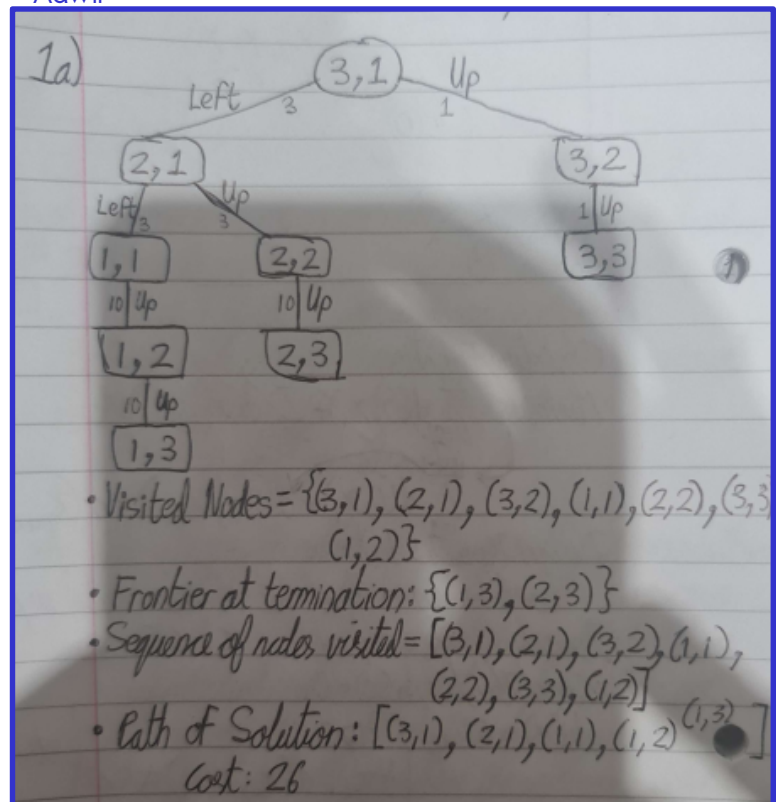 1a)
3,1
Left
3
Up
1
2,1
3,2
Left
3
Up
3
1
Up
1,1
2,2
3,3
10
Up
10
Up
1,2
2,3
10
Up
1,3
• Visited Nodes = {(3,1), (2,1), (3,2), (1,1), (2,2), (3,3
(1,2)}
• Frontier at termination: {(1,3), (2,3)}
• Sequence of nodes visited = [(3,1), (2,1), (3,2), (1,1),
(2,2), (3,3), (1,2)]
• Path of Solution: [(3,1), (2,1), (1,1), (1,2) (1,3) ]
Cost: 26